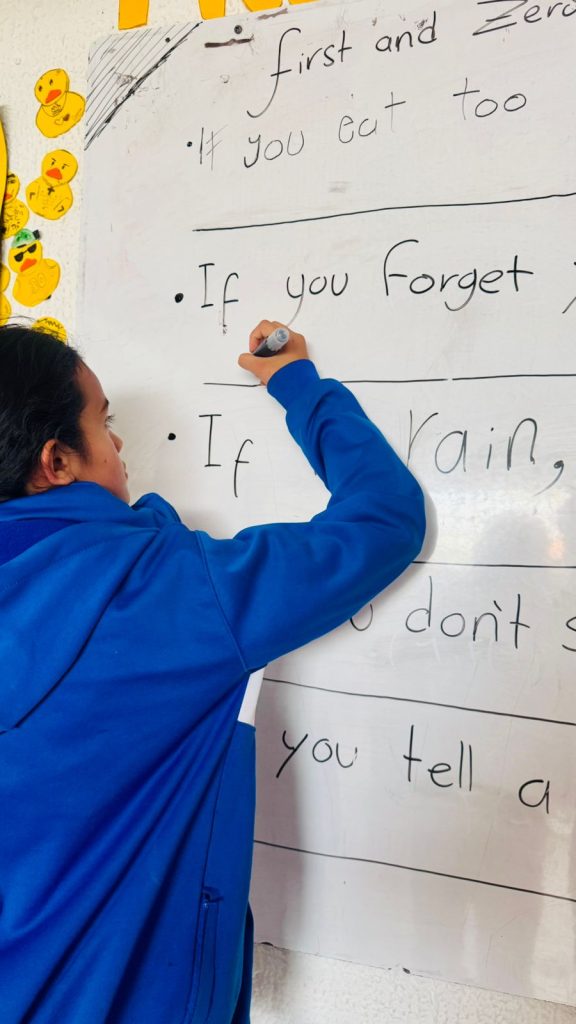 first and Zero
• If you eat too
• If you forget
• If rain,
don't
you tell a